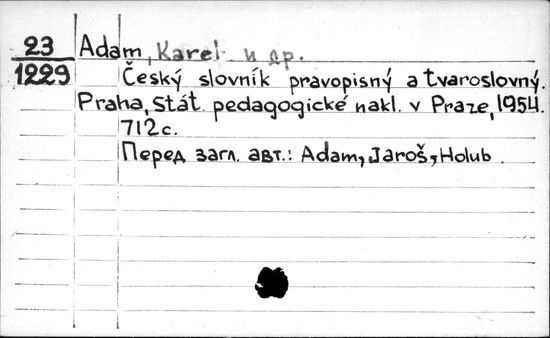 23 Adam, Karel и др.
1229 Český slovník pravopisný a tvaroslovný.
Praha, Stát. pedagogické nakl. v Praze, 1954.
712 с.
Перед загл. авт.: Adam, Jaroš, Holub.